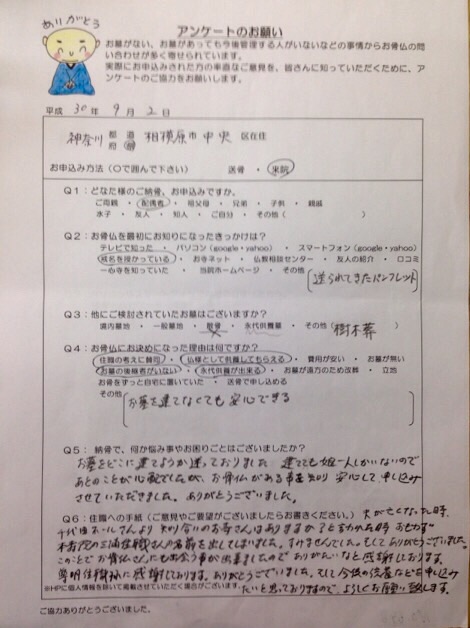 ありがとう
アンケートのお願い
お墓がない、お墓があっても今後管理する人がいないなどの事情からお骨仏の問
い合わせが多く寄せられています。
実際にお申込みされた方の率直なご意見を、皆さんに知っていただくために、ア
ンケートのご協力をお願いします。
平成 30年 9月 2日
神奈川 都道府県 相模原市中央 区在住
お申込み方法(〇で囲んで下さい) 送骨 ・ 来院
Q1:どなた様のご納骨、お申込みですか。
ご母親 ・ 配偶者 ・ 祖父母 ・ 兄弟 ・ 子供 ・ 親戚
水子 ・ 友人 ・ 知人 ・ ご自分 ・ その他( )
Q2:お骨仏を最初にお知りになったきっかけは?
テレビで知った ・ パソコン(google・yahoo) ・ スマートフォン(google・yahoo)
戒名を授かっている ・ お寺ネット ・ 仏教相談センター ・ 友人の紹介 ・ 口コミ
一心寺を知っていた ・ 当院ホームページ ・ その他 (送られてきたパンフレット)
Q3:他にご検討されていたお墓はございますか?
境内墓地 ・ 一般墓地 ・ 散骨 ・ 永代供養墓 ・ その他( 樹木葬 )
Q4:お骨仏にお決めになった理由は何ですか?
住職の考えに賛同 ・ 仏様として供養してもらえる ・ 費用が安い ・ お墓が無い
お墓の後継者がいない ・ 永代供養が出来る ・ お墓が遠方のため改葬 ・ 立地
お骨をずっと自宅に置いていた ・ 送骨で申し込める
その他 (お墓を建てなくても安心できる
Q5: 納骨で、何か悩み事やお困りごとはございましたか?
お墓をどこに建てようか迷っておりました 建てても娘一人しかいないので
あとのことが心配でしたが、お骨仏がある事を知り 安心して申し込み
させていただきました。ありがとうございました。
Q6:住職への手紙(ご意見やご要望がございましたらお書きください。) 夫が亡くなった時、
千代田ホールさんより 知り合いのお寺さんはありますか?と言われた時 おもわず
住職さんの名前を出してしまいました。すみませんでした。そしてありがとうございました。
このことで お骨仏さんにも出会う事が出来ましたので ありがたいなと感謝しております。
住職様に感謝しております。ありがとうございました。そして今後の法要なども申し込み
※HPに個人情報を除いて掲載させていただく場合がございます。
たいと思っておりますので、よろしくお願い致します。
ご協力ありがとうございました。